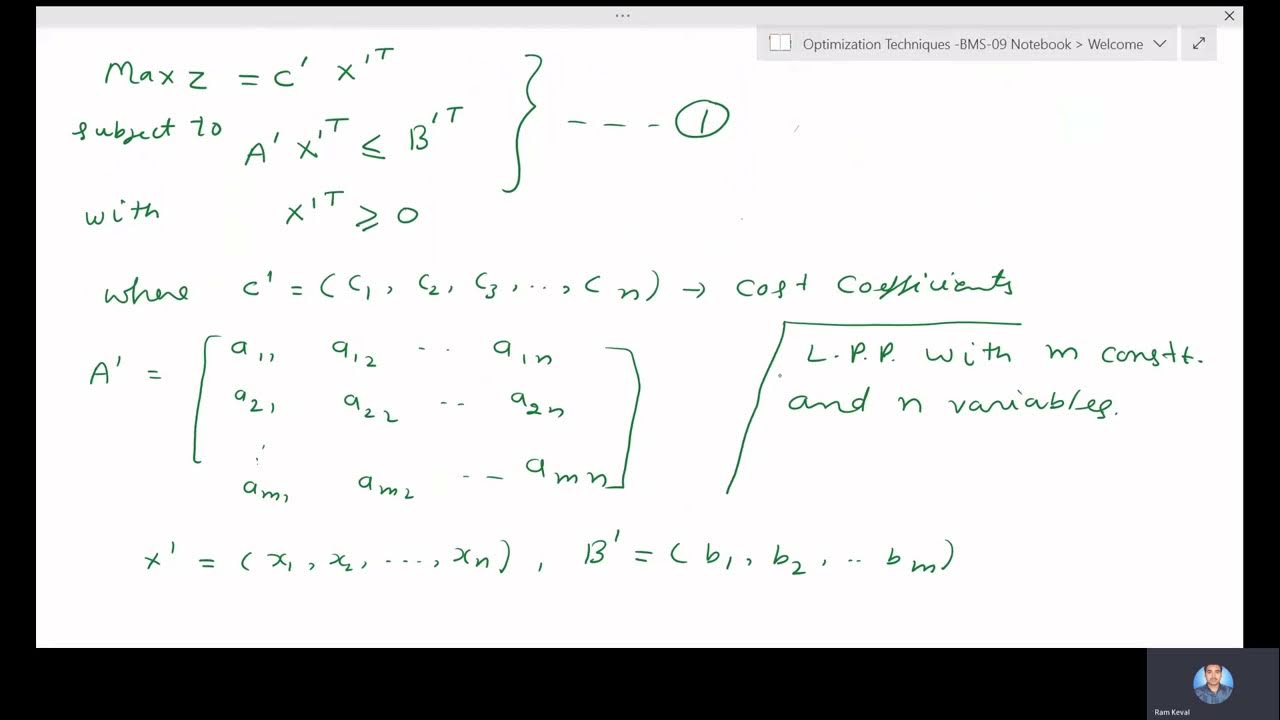 ...
Optimization Techniques -BMS-09 Notebook > Welcome
Max z = c' x'ᵀ
subject to A' x'ᵀ ≤ B'ᵀ } - - - - ①
with x'ᵀ ⩾ 0
where c' = (c₁, c₂, c₃, .., cₙ) → cost coefficients
A' = [ a₁₁ a₁₂ .. a₁ₙ
a₂₁ a₂₂ .. a₂ₙ
⋮
aₘ₁ aₘ₂ .. aₘₙ ]
L.P.P. with m constt.
and n variables.
x' = (x₁, x₂, ..., xₙ), B' = (b₁, b₂, .. bₘ)
Ram Keval